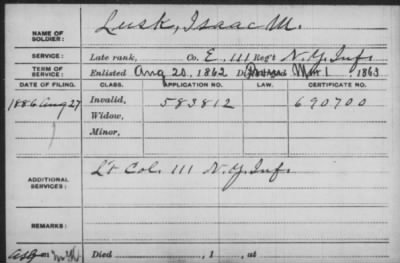 NAME OF SOLDIER: Lusk, Isaac M.
SERVICE: Late rank, Co. E. 111 Reg't N.Y. Inf.
TERM OF SERVICE: Enlisted Aug 20, 1862 Mar 1, 1863
DATE OF FILING. CLASS. APPLICATION NO. LAW. CERTIFICATE NO.
1886 Aug 27 Invalid, 583812 690700
Widow,
Minor,
ADDITIONAL SERVICES: Lt Col. 111 N.Y. Inf.
REMARKS:
Died , 1 , at